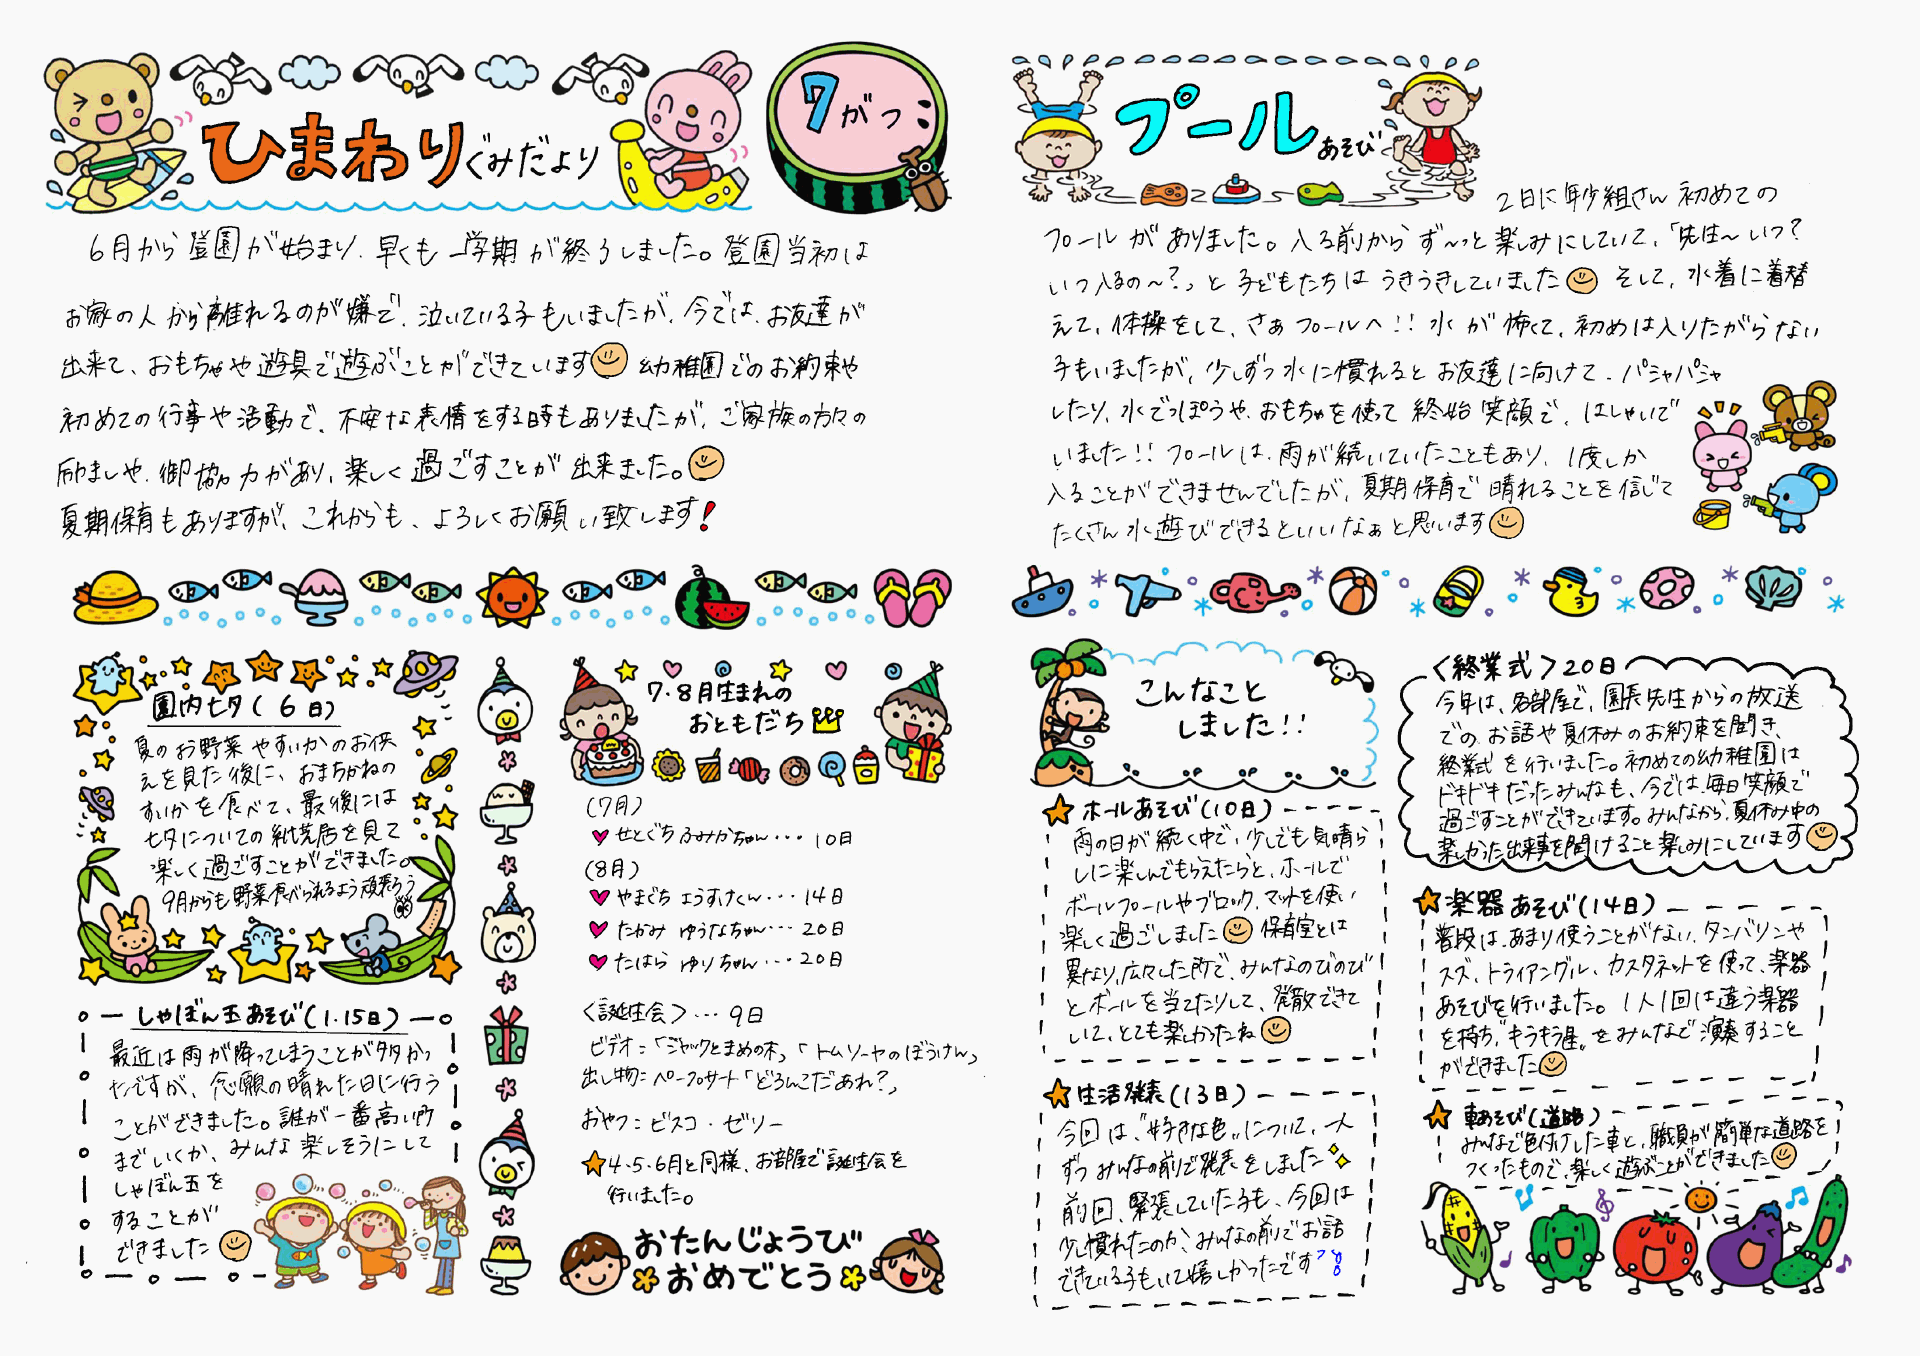 ひまわりぐみだより
7がつ
6月から登園が始まり、早くも一学期が終了しました。登園当初は
お家の人から離れるのが嫌で、泣いている子もいましたが、今では、お友達が
出来て、おもちゃや遊具で遊ぶことができています 幼稚園でのお約束や
初めての行事や活動で、不安な表情をする時もありましたが、ご家族の方々の
励ましや、御協力があり、楽しく過ごすことが出来ました。
夏期保育もありますが、これからも、よろしくお願い致します!
園内七夕(6日)
夏のお野菜やすいかのお供
えを見た後に、おまちかねの
すいかを食べて、最後には
七夕についての紙芝居を見て
楽しく過ごすことができました。
9月からも野菜食べられるよう頑張ろう
しゃぼん玉あそび(1.15日)
最近は雨が降ってしまうことが多かっ
たですが、念願の晴れた日に行う
ことができました。誰が一番高い所
までいくか、みんな楽しそうにして
しゃぼん玉を
することが
できました
7・8月生まれの
おともだち
(7月)
せとぐちふみかちゃん・・・10日
(8月)
やまぐちようすけくん・・・14日
たかみゆうなちゃん・・・20日
たはらゆりちゃん・・・20日
〈誕生会〉・・・9日
ビデオ:「ジャックとまめの木」「トムソーヤのぼうけん」
出し物:ペープサート「どろんこだあれ?」
おやつ:ビスコ・ゼリー
4・5・6月と同様、お部屋で誕生会を
行いました。
おたんじょうび
おめでとう
プールあそび
2日に年少組さん初めての
プールがありました。入る前からず〜っと楽しみにしていて、「先生〜いつ?
いつ入るの〜?」と子どもたちはうきうきしていました そして、水着に着替
えて、体操をして、さぁプールへ!!水が怖くて、初めは入りたがらない
子もいましたが、少しずつ水に慣れるとお友達に向けて、パシャパシャ
したり、水でっぽうや、おもちゃを使って終始笑顔で、はしゃいで
いました!!プールは、雨が続いていたこともあり、1度しか
入ることができませんでしたが、夏期保育で晴れることを信じて
たくさん水遊びできるといいなぁと思います
こんなこと
しました!!
ホールあそび(10日)
雨の日が続く中で、少しでも気晴ら
しに楽しんでもらえたらと、ホールで
ボールプールやブロック、マットを使い
楽しく過ごしました 保育室とは
異なり、広々した所で、みんなのびのび
とボールを当てたりして、発散できて
いて、とても楽しかったね
生活発表(13日)
今回は、"好きな色"について、一人
ずつみんなの前で発表をしました
前回、緊張していた子も、今回は
少し慣れたのか、みんなの前でお話
できている子もいて嬉しかったです
〈終業式〉20日
今年は、各部屋で、園長先生からの放送
でのお話や夏休みのお約束を聞き、
終業式を行いました。初めての幼稚園は
ドキドキだったみんなも、今では、毎日笑顔で
過ごすことができています。みんなから、夏休み中の
楽しかった出来事を聞けること楽しみにしています
楽器あそび(14日)
普段は、あまり使うことがない、タンバリンや
スズ、トライアングル、カスタネットを使って、楽器
あそびを行いました。1人1回は違う楽器
を持ち"キラキラ星"をみんなで演奏すること
ができました
車あそび(道路)
みんなで色付けした車と、職員が簡単な道路を
つくったもので、楽しく遊ぶことができました